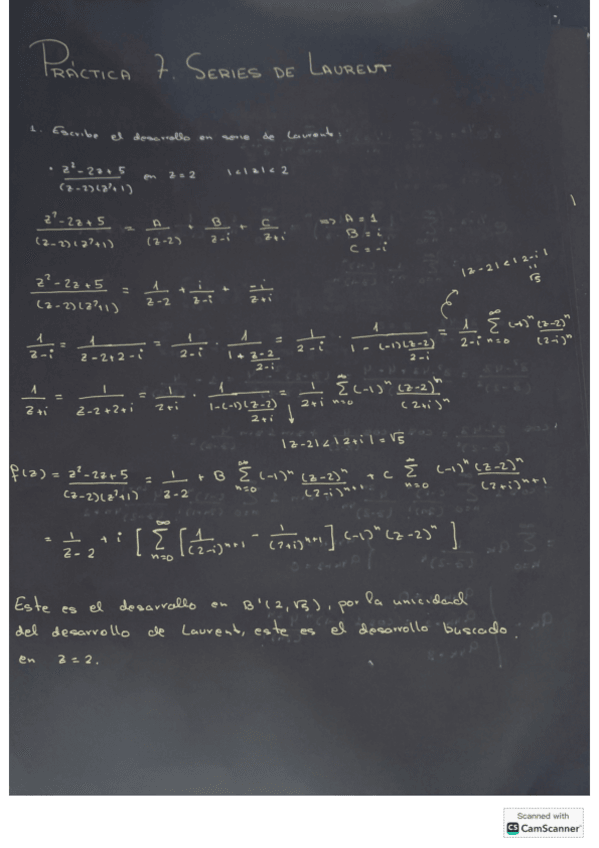 PRÁCTICA 7. SERIES DE LAURENT
1. Escribe el desarrollo en serie de Laurent:
· (z²-2z+5)/((z-2)(z²+1)) en z=2 1<|z|<2
(z²-2z+5)/((z-2)(z²+1)) = A/(z-2) + B/(z-i) + C/(z+i) => A=1
B=i
C=-i
(z²-2z+5)/((z-2)(z²+1)) = 1/(z-2) + i/(z-i) + -i/(z+i)
|z-2|<|2-i|
=
√5
1/(z-i) = 1/(z-2+2-i) = 1/(2-i) · 1/(1+(z-2)/(2-i)) = 1/(2-i) · 1/(1-(-1)(z-2)/(2-i)) = 1/(2-i) ∑_{n=0}^{∞} (-1)ⁿ (z-2)ⁿ/(2-i)ⁿ
1/(z+i) = 1/(z-2+2+i) = 1/(2+i) · 1/(1-(-1)(z-2)/(2+i)) = 1/(2+i) ∑_{n=0}^{∞} (-1)ⁿ (z-2)ⁿ/(2+i)ⁿ
|z-2|<|2+i|=√5
f(z) = (z²-2z+5)/((z-2)(z²+1)) = 1/(z-2) + B ∑_{n=0}^{∞} (-1)ⁿ (z-2)ⁿ/(2-i)ⁿ⁺¹ + C ∑_{n=0}^{∞} (-1)ⁿ(z-2)ⁿ/(2+i)ⁿ⁺¹
= 1/(z-2) + i [ ∑_{n=0}^{∞} [1/(2-i)ⁿ⁺¹ - 1/(2+i)ⁿ⁺¹] (-1)ⁿ(z-2)ⁿ ]
Este es el desarrollo en B'(2,√5), por la unicidad
del desarrollo de Laurent, este es el desarrollo buscado
en z=2.
Scanned with
CS CamScanner